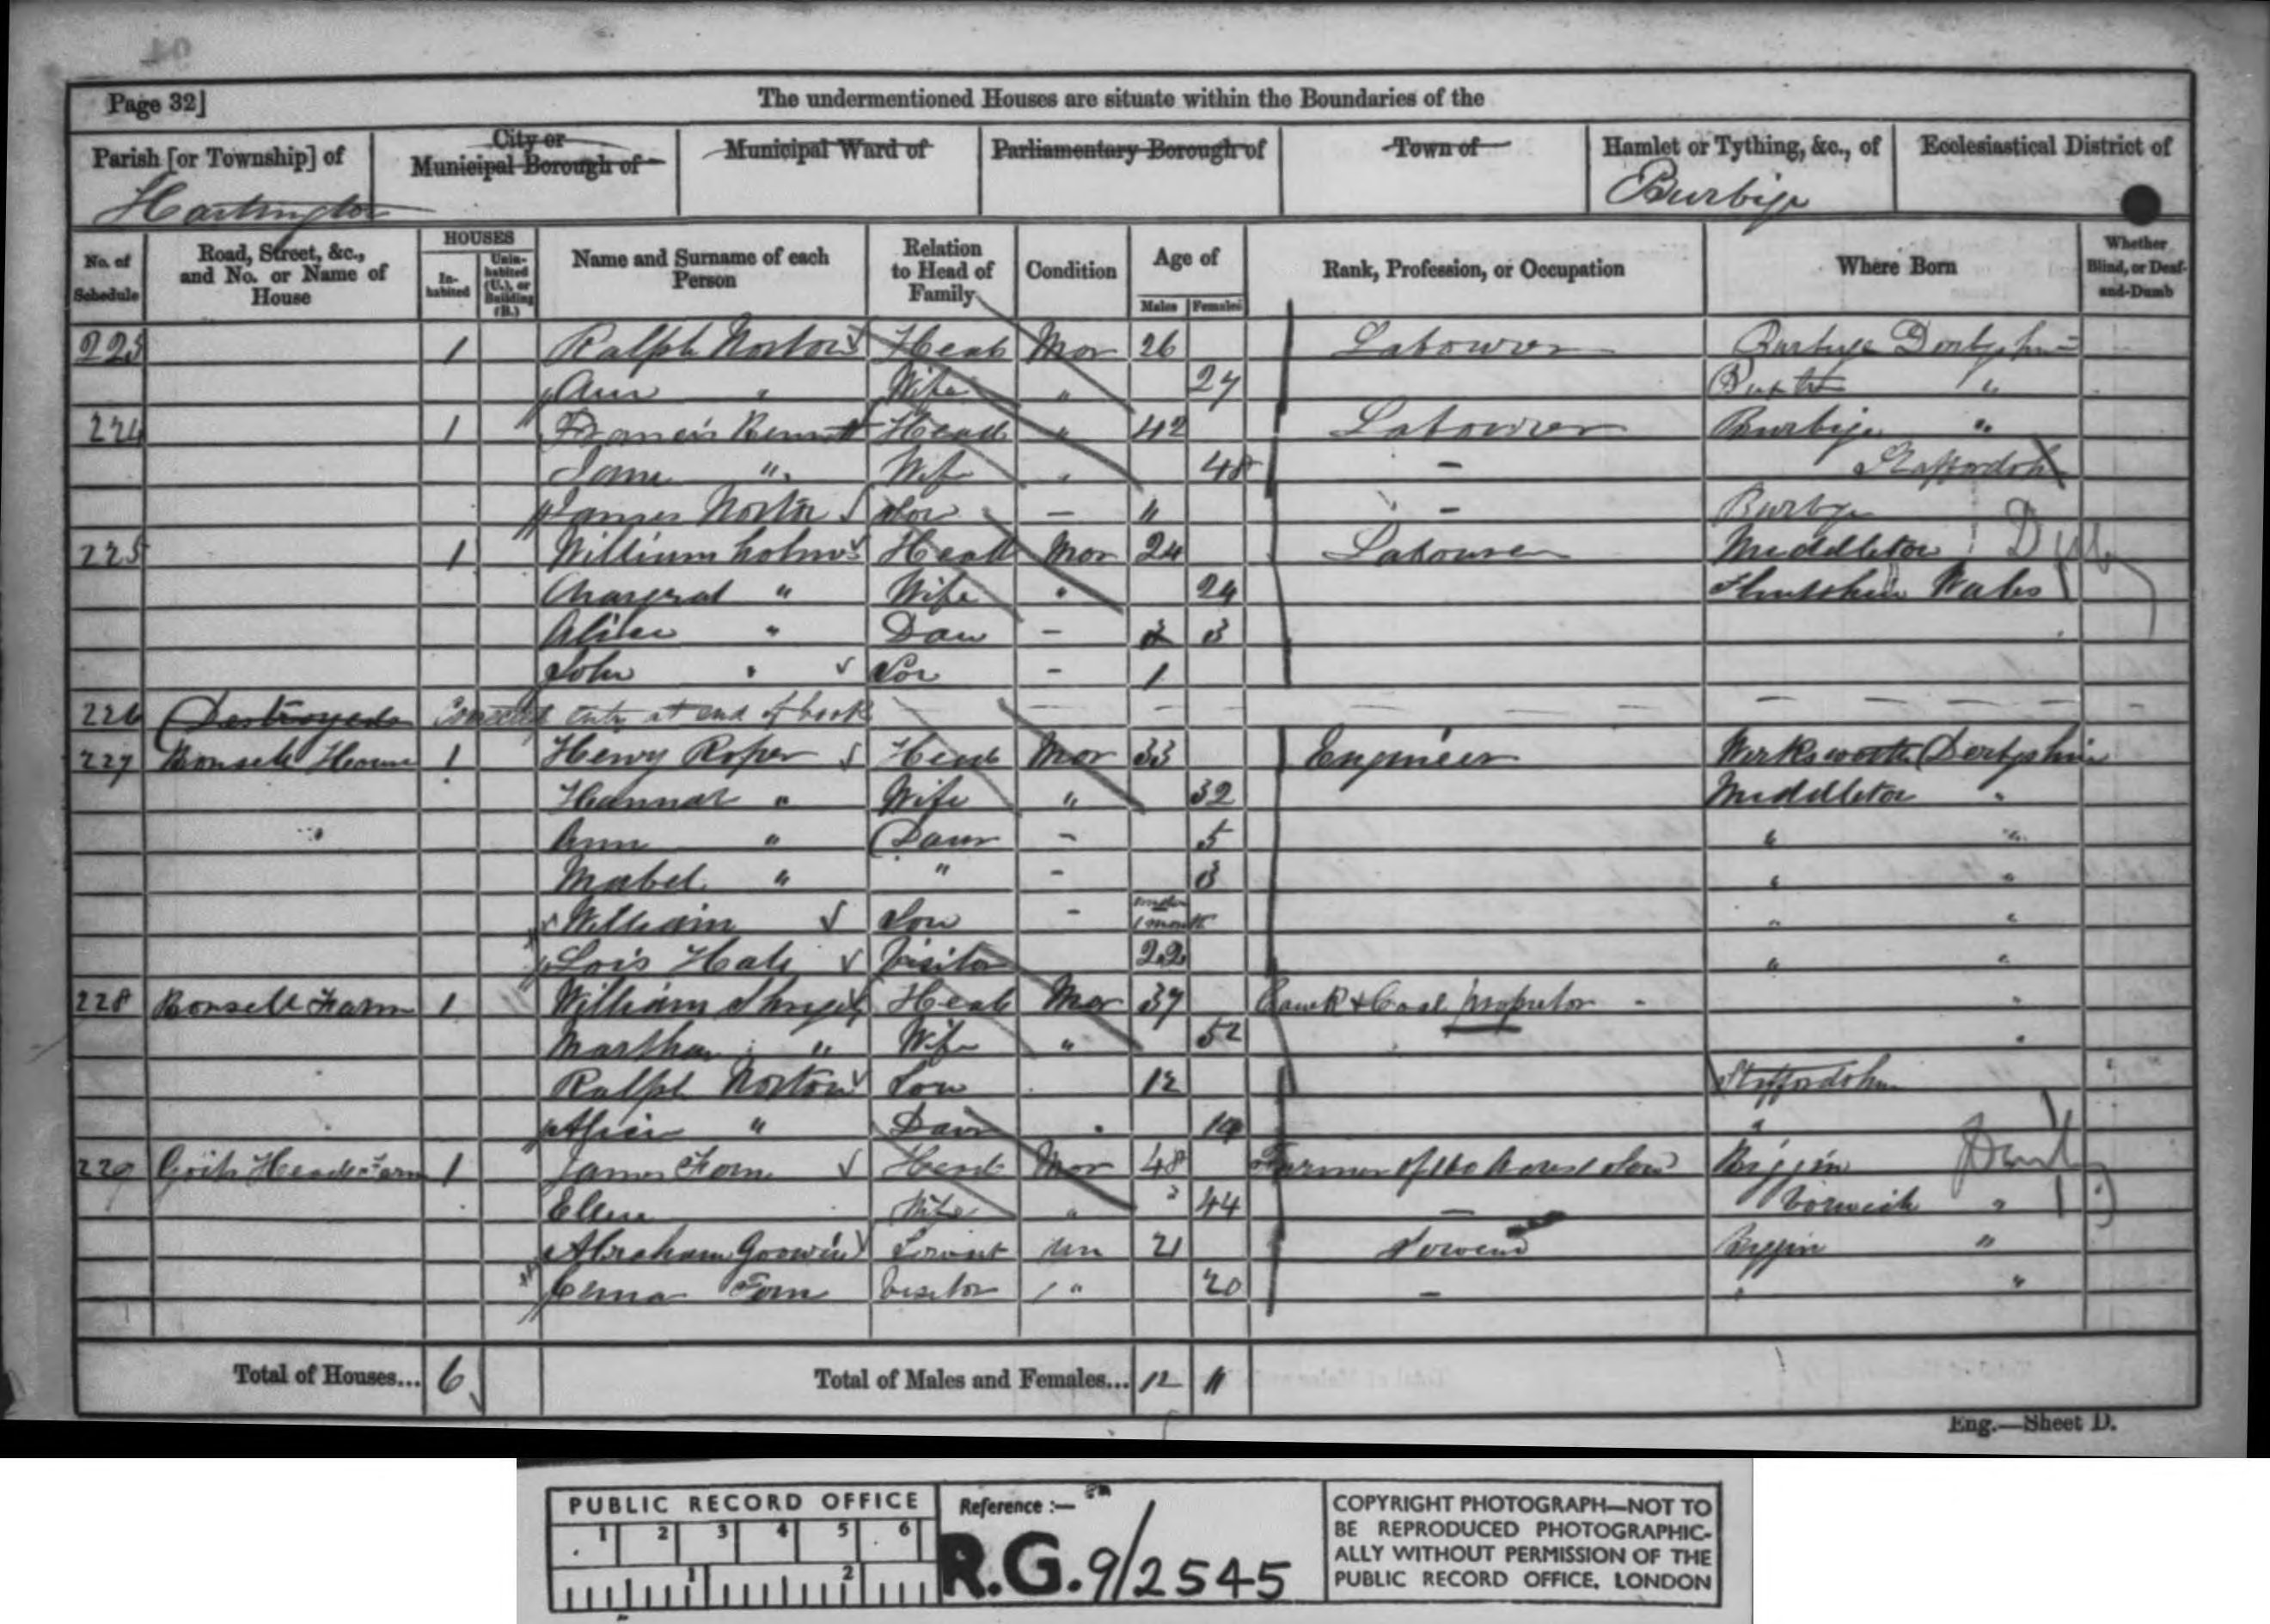 Page 32]
The undermentioned Houses are situate within the Boundaries of the
Parish [or Township] of
Hartington
City or
Municipal Borough of
Municipal Ward of
Parliamentary Borough of
Town of
Hamlet or Tything, &c., of
Burbige
Ecclesiastical District of
No. of Schedule
Road, Street, &c., and No. or Name of House
HOUSES
Inhabited
Uninhabited (U.), or Building (B.)
Name and Surname of each Person
Relation to Head of Family
Condition
Age of
Males Females
Rank, Profession, or Occupation
Where Born
Whether Blind, or Deaf-and-Dumb
223 1 Ralph Norton Head Mar 26 Labourer Derbyshire
Ann " Wife " 27 Buxton "
224 1 Francis Bennett Head " 42 Labourer Burbige "
Jane " Wife " 48 - Staffordsh
James Norton Son - 11 - Burbige
225 1 William Holmes Head Mar 24 Labourer Middleton
Margrat " Wife " 24 Flintshire Wales
Alice " Daur - 3 3
John " Son - 1
226 Destroyed entry at end of book
227 1 Henry Roper Head Mar 33 Engineer Wirksworth Derbyshire
Hannah " Wife " 32 Middleton "
Ann " Daur - 5 " "
Mabel " " - 3 " "
William Son - under 1 month " "
Lois Hall Visitor 22 " "
228 Bonsell Farm 1 William Head Mar 37 & Coal propretor - "
Martha " Wife " 52 "
Ralph Norton Son 12 Staffordshire
Alice " Daur 10 "
229 Head Farm 1 James Head Mar 48 Farmer of Biggin
Ellen Wife " 44 - "
Abraham Goowin Servant Un 21 Biggin "
Visitor " 20 - " "
Total of Houses... 6
Total of Males and Females... 12 11
Eng.—Sheet D.
PUBLIC RECORD OFFICE
1 2 3 4 5 6
1 2
Reference :—
R.G. 9/2545
COPYRIGHT PHOTOGRAPH—NOT TO
BE REPRODUCED PHOTOGRAPHIC-
ALLY WITHOUT PERMISSION OF THE
PUBLIC RECORD OFFICE, LONDON